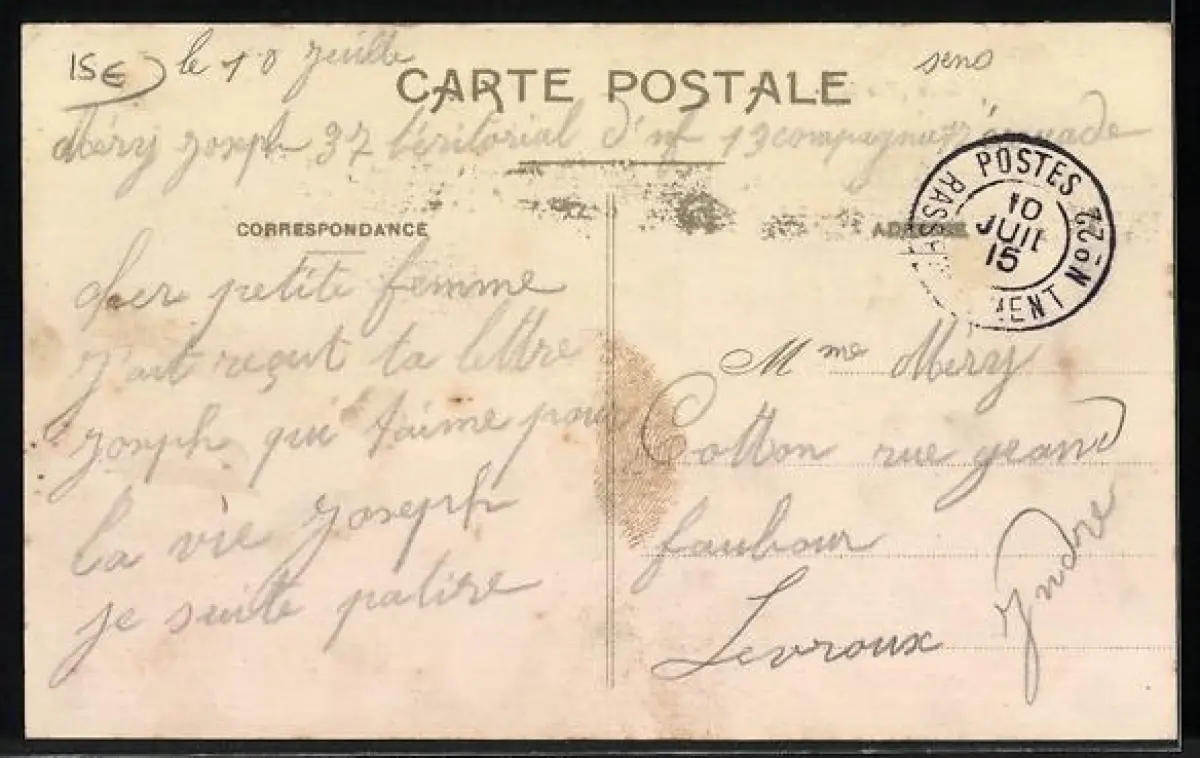 15€ le 10 Juille
sens
CARTE POSTALE
Méry Joseph 37 téritorial d'inf 13 compagnie escouade
CORRESPONDANCE
ADRESSE
POSTES No 22
10
JUIL
15
RAS MENT
cher petite femme
J'ait reçut ta lettre
Joseph qui t'aime pour
la vie Joseph
je suite patire
Mme Méry
Cotton rue grand
faubour
Levroux
Indre